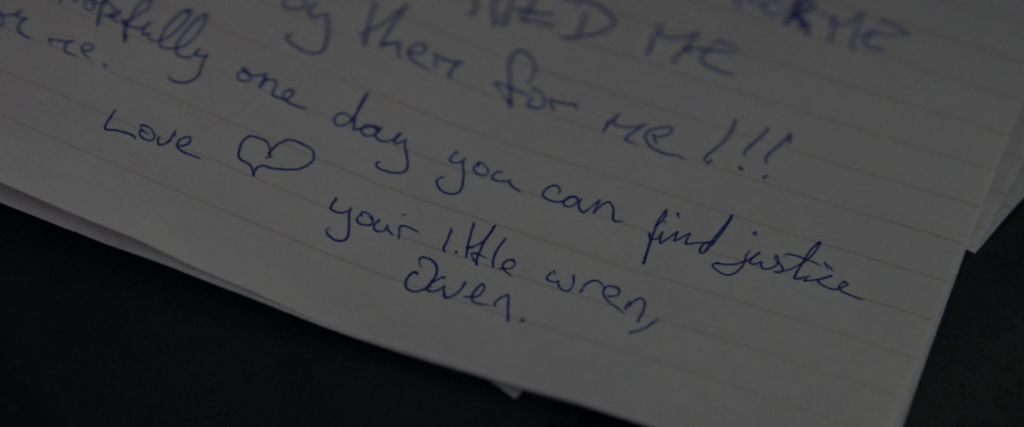 FOR ME
ME
by them for me!!!
hopefully one day you can find justice
for me.
Love
your little wren,
Owen.